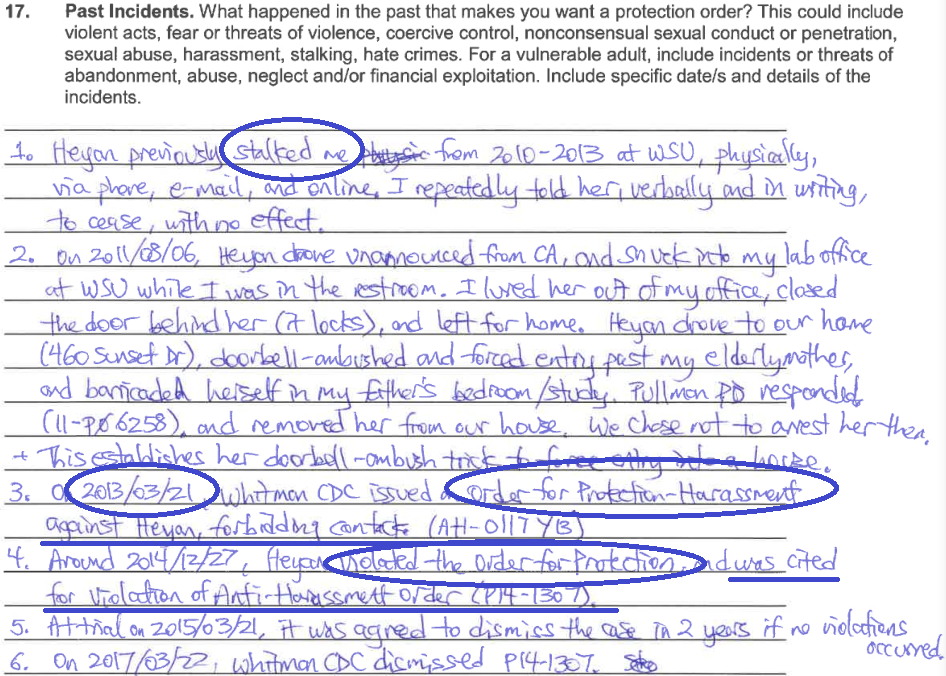 17. Past Incidents. What happened in the past that makes you want a protection order? This could include
violent acts, fear or threats of violence, coercive control, nonconsensual sexual conduct or penetration,
sexual abuse, harassment, stalking, hate crimes. For a vulnerable adult, include incidents or threats of
abandonment, abuse, neglect and/or financial exploitation. Include specific date/s and details of the
incidents.
1. Heyan previously stalked me from 2010-2013 at WSU, physically,
via phone, e-mail, and online. I repeatedly told her, verbally and in writing,
to cease, with no effect.
2. On 2011/08/06, Heyan drove unannounced from CA, and snuck into my lab office
at WSU while I was in the restroom. I lured her out of my office, closed
the door behind her (it locks), and left for home. Heyan drove to our home
(460 Sunset Dr), doorbell-ambushed and forced entry past my elderly mother,
and barricaded herself in my father's bedroom/study. Pullman PD responded
(11-P06258), and removed her from our house. We chose not to arrest her then.
+ This establishes her doorbell-ambush trick to force entry into a house.
3. On 2013/03/21, Whitman CDC issued a Order for Protection-Harassment
against Heyan, forbidding contact. (AH-0117 YB)
4. Around 2014/12/27, Heyan violated the Order for Protection, and was cited
for Violation of Anti-Harassment Order (P14-1307).
5. At trial on 2015/03/21, it was agreed to dismiss the case in 2 years if no violations
occurred.
6. On 2017/03/22, Whitman CDC dismissed P14-1307.